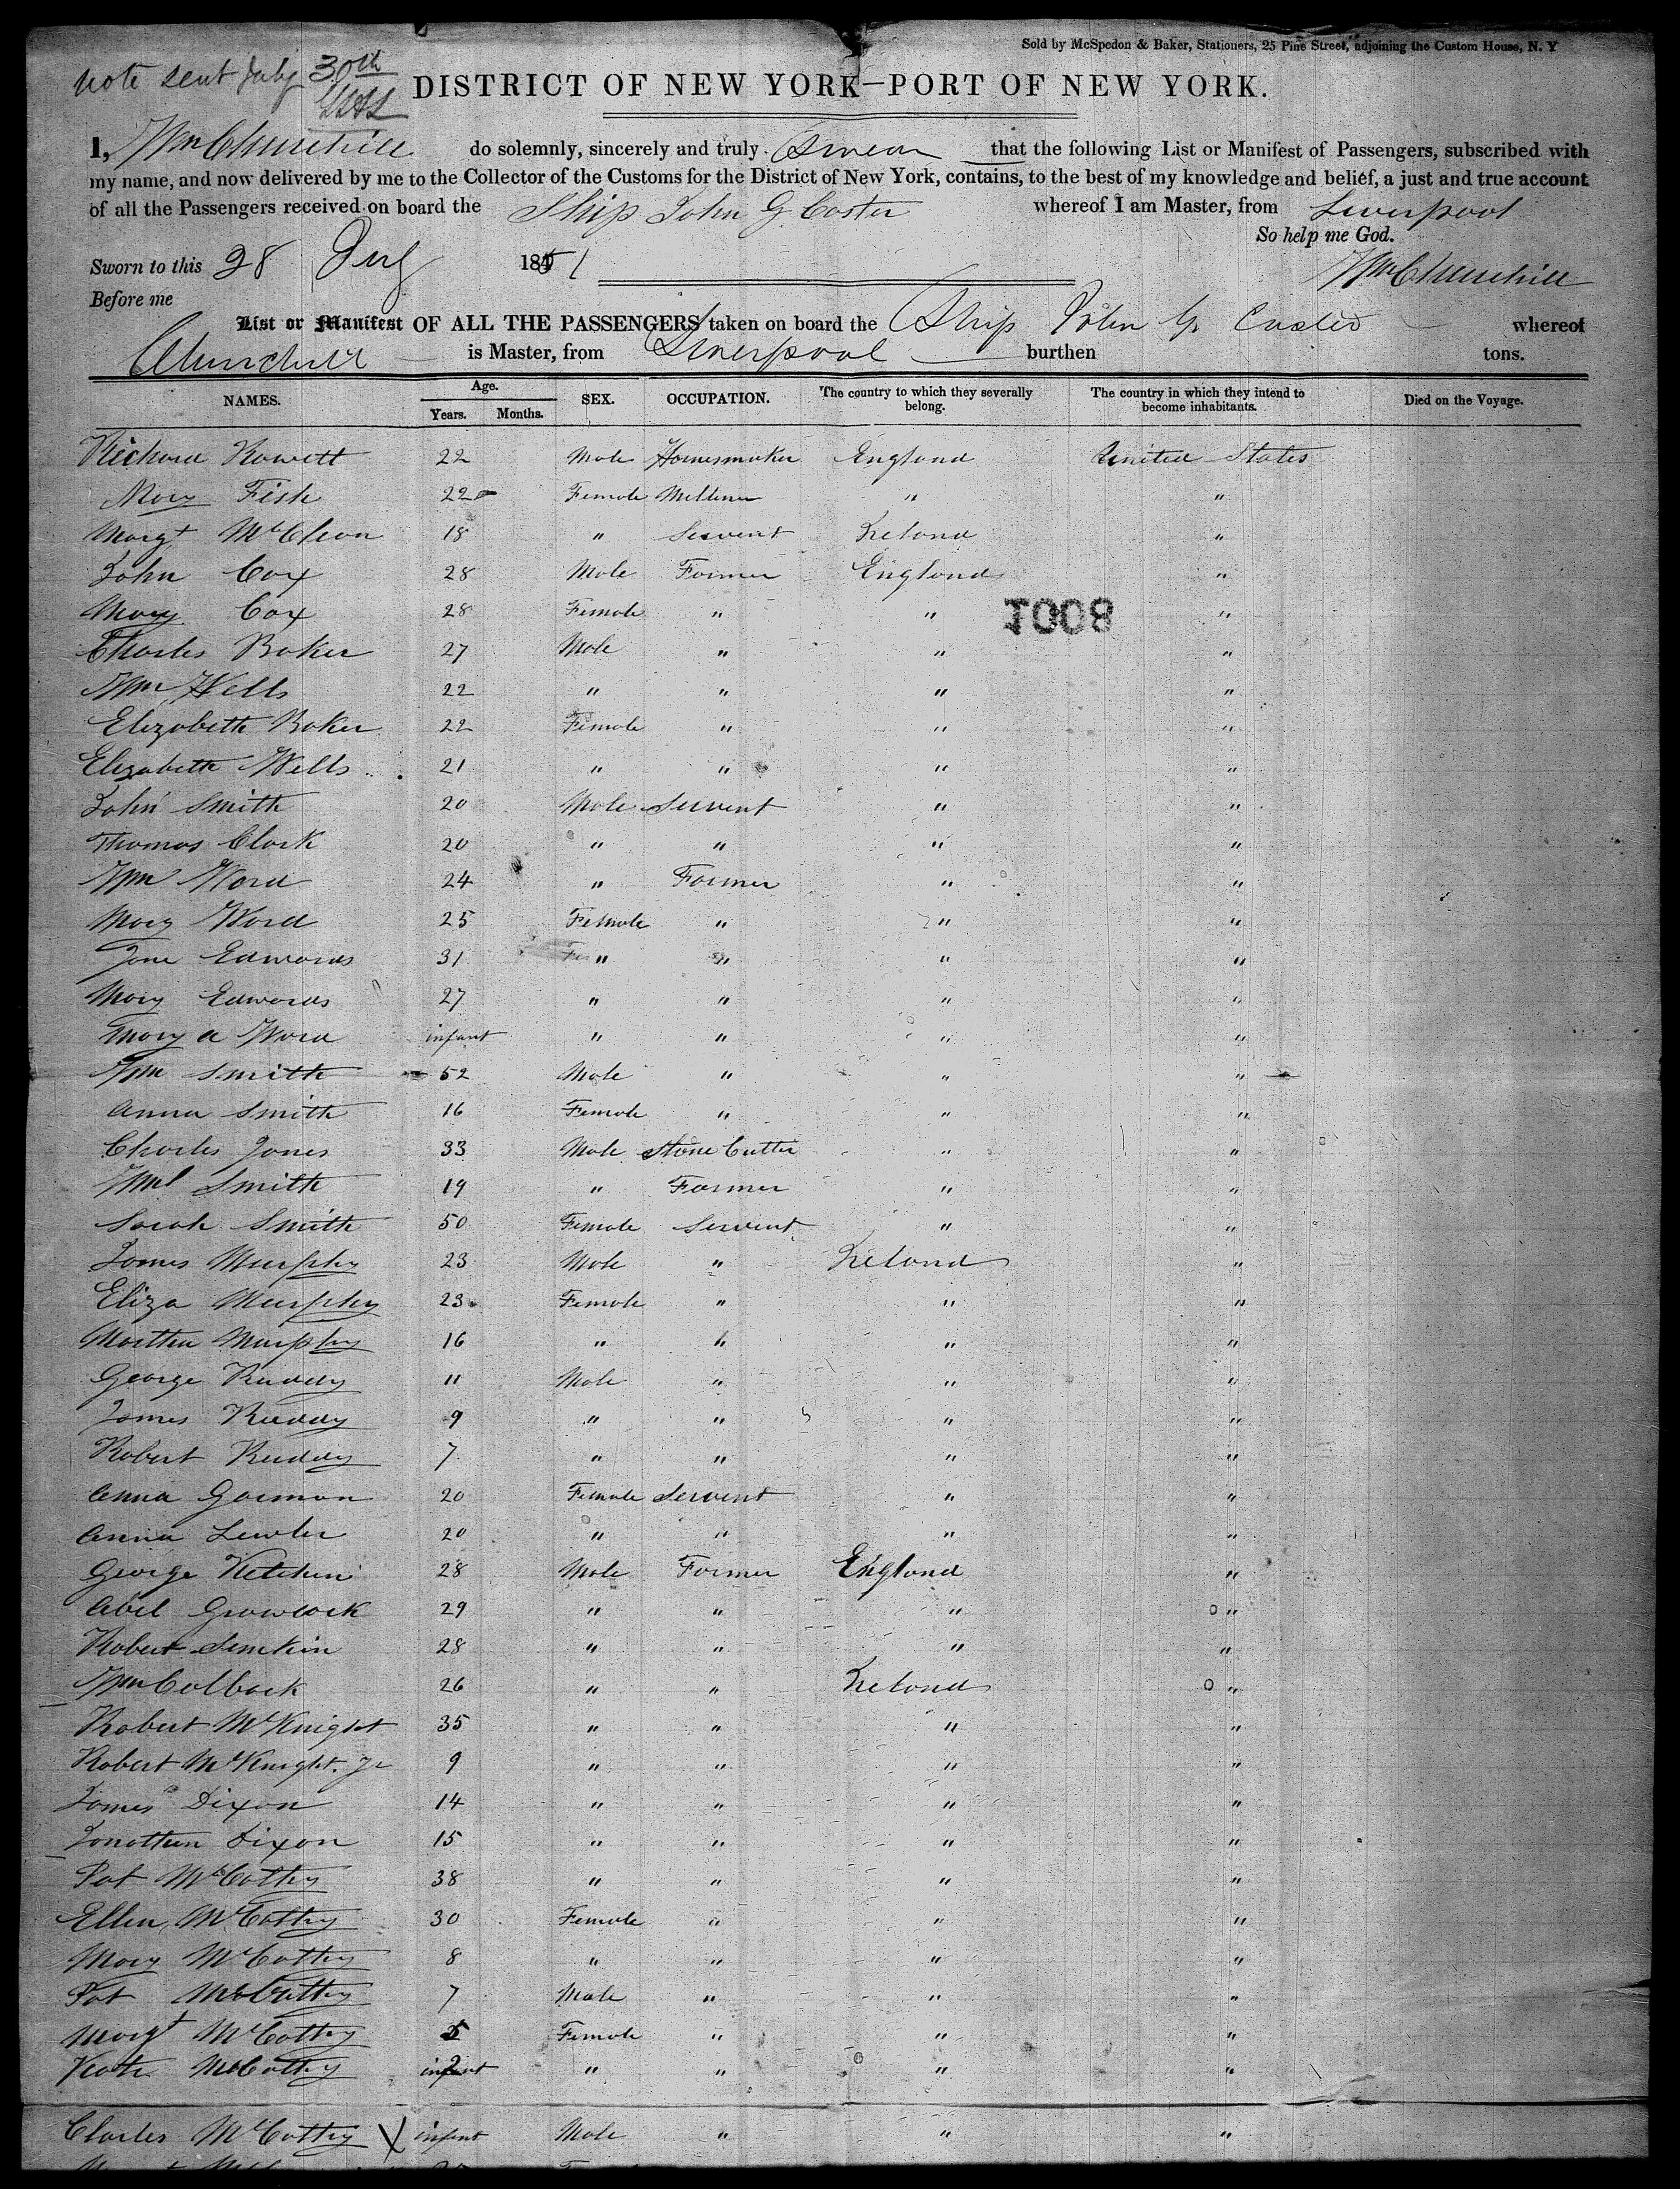 Sold by McSpedon & Baker, Stationers, 25 Pine Street, adjoining the Custom House, N. Y
note sent July 30th
DISTRICT OF NEW YORK—PORT OF NEW YORK.
I, Wm Churchill do solemnly, sincerely and truly Swear that the following List or Manifest of Passengers, subscribed with
my name, and now delivered by me to the Collector of the Customs for the District of New York, contains, to the best of my knowledge and belief, a just and true account
of all the Passengers received on board the Ship John G Coster whereof I am Master, from Liverpool
So help me God.
Sworn to this 28 July 1851 Wm Churchill
Before me
List or Manifest OF ALL THE PASSENGERS taken on board the Ship John G. Coster whereof
Churchill is Master, from Liverpool burthen tons.
NAMES. Age. Years. Months. SEX. OCCUPATION. The country to which they severally belong. The country in which they intend to become inhabitants. Died on the Voyage.
Richard Rowett 22 Male England United States
Mary Fish 22 Female Milliner " "
Margt McClean 18 " Servent Ireland "
John Cox 28 Male Farmer England "
Mary Cox 28 Female " " "
1008
Charles Baker 27 Male " " "
Wm Wells 22 " " " "
Elizabeth Baker 22 Female " " "
Elizabeth Wells 21 " " " "
John Smith 20 Male Servent " "
Thomas Clark 20 " " " "
Wm Ward 24 " Farmer " "
Mary Ward 25 Female " " "
Jane Edwards 31 " " " "
Mary Edwards 27 " " " "
Mary A Ward infant " " " "
Wm Smith 52 Male " " "
Anna Smith 16 Female " " "
Charles Jones 33 Male Stone Cutter " "
Wm Smith 19 " Farmer " "
Sarah Smith 50 Female Servent " "
James Murphy 23 Male " Ireland "
Eliza Murphy 23 Female " " "
Martha Murphy 16 " " " "
George Ruddy 11 Male " " "
James Ruddy 9 " " " "
Robert Ruddy 7 " " " "
Anna Gorman 20 Female Servent " "
Anna Lawler 20 " " " "
George Ketchin 28 Male Farmer England "
Abel 29 " " " "
Robert Simkin 28 " " " "
Wm Colback 26 " " Ireland "
Robert McKnight 35 " " " "
Robert McKnight. Jr 9 " " " "
James Dixon 14 " " " "
Jonathan Dixon 15 " " " "
Pat McCathy 38 " " " "
Ellen McCathy 30 Female " " "
Mary McCathy 8 " " " "
Pat McCathy 7 Male " " "
Margt McCathy 5 Female " " "
Kate McCathy 2 " " " "
Charles McCathy X infant Male " " "